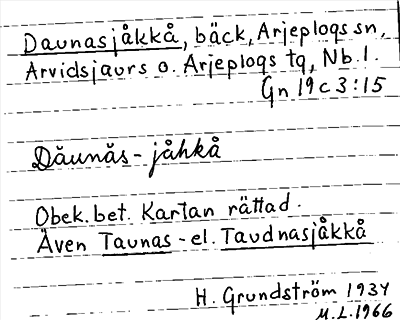 Daunasjåkkå, bäck, Arjeplogs sn,
Arvidsjaurs o. Arjeplogs tg, Nb. l.
Gn 19c3:15
Dău̇năs-jåhkå
Obek. bet. Kartan rättad.
Även Taunas- el. Taudnasjåkkå
H. Grundström 1934
M.L.1966